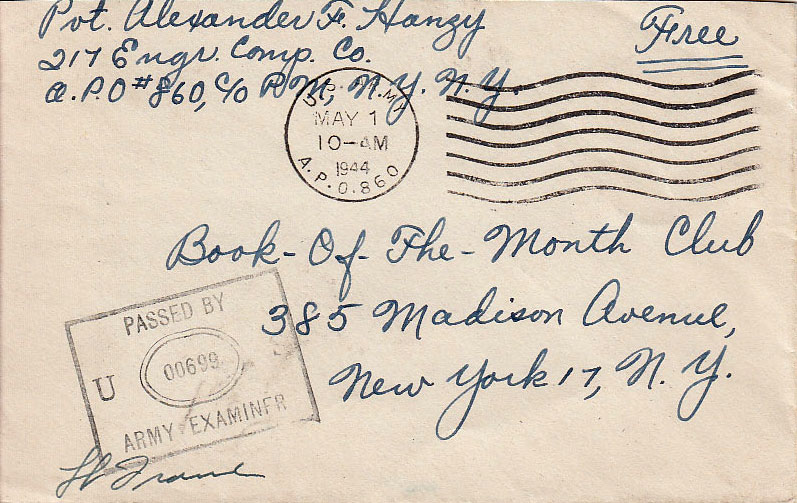 Pvt. Alexander F. Hanzy
Free
217 Engr. Comp. Co.
a.P.O #860, c/o P M, N.Y. N.Y.
MAY 1
10-AM
1944
A.P.O. 860
Book-Of-The-Month Club
385 Madison Avenue,
New York 17, N.Y.
PASSED BY
U 00699
ARMY EXAMINER